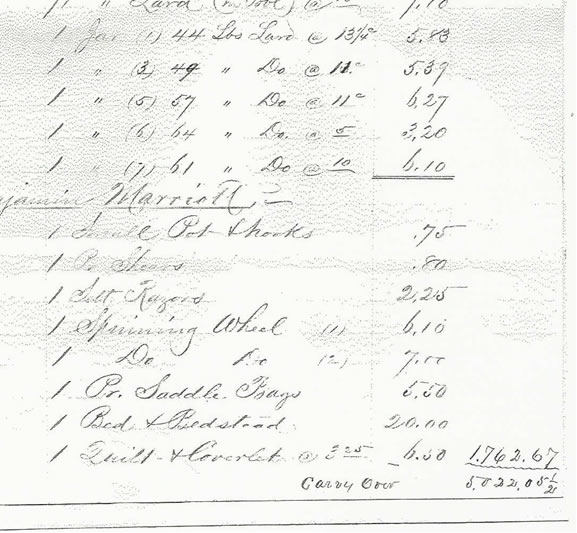 " Lard (in Tub) @ 7.10
1 Jar (1) 44 Lbs Lard @ 13¼c 5.83
1 " (3) 49 " Do @ 11c 5.39
1 " (5) 57 " Do @ 11c 6.27
1 " (6) 64 " Do. @ 5 3.20
1 " (7) 61 " Do @ 10 6.10
njamin Marriott,
1 Small Pot & hooks .75
1 Pr Shears .80
1 Sett Razors 2.25
1 Spinning Wheel (1) 6.10
1 Do Do (2) 7.00
1 Pr. Saddle Bags 5.50
1 Bed & Bedstead 20.00
1 Quilt & Coverlet @ 3 25 6.50 1.762.67
Carry Over 5.022.05½